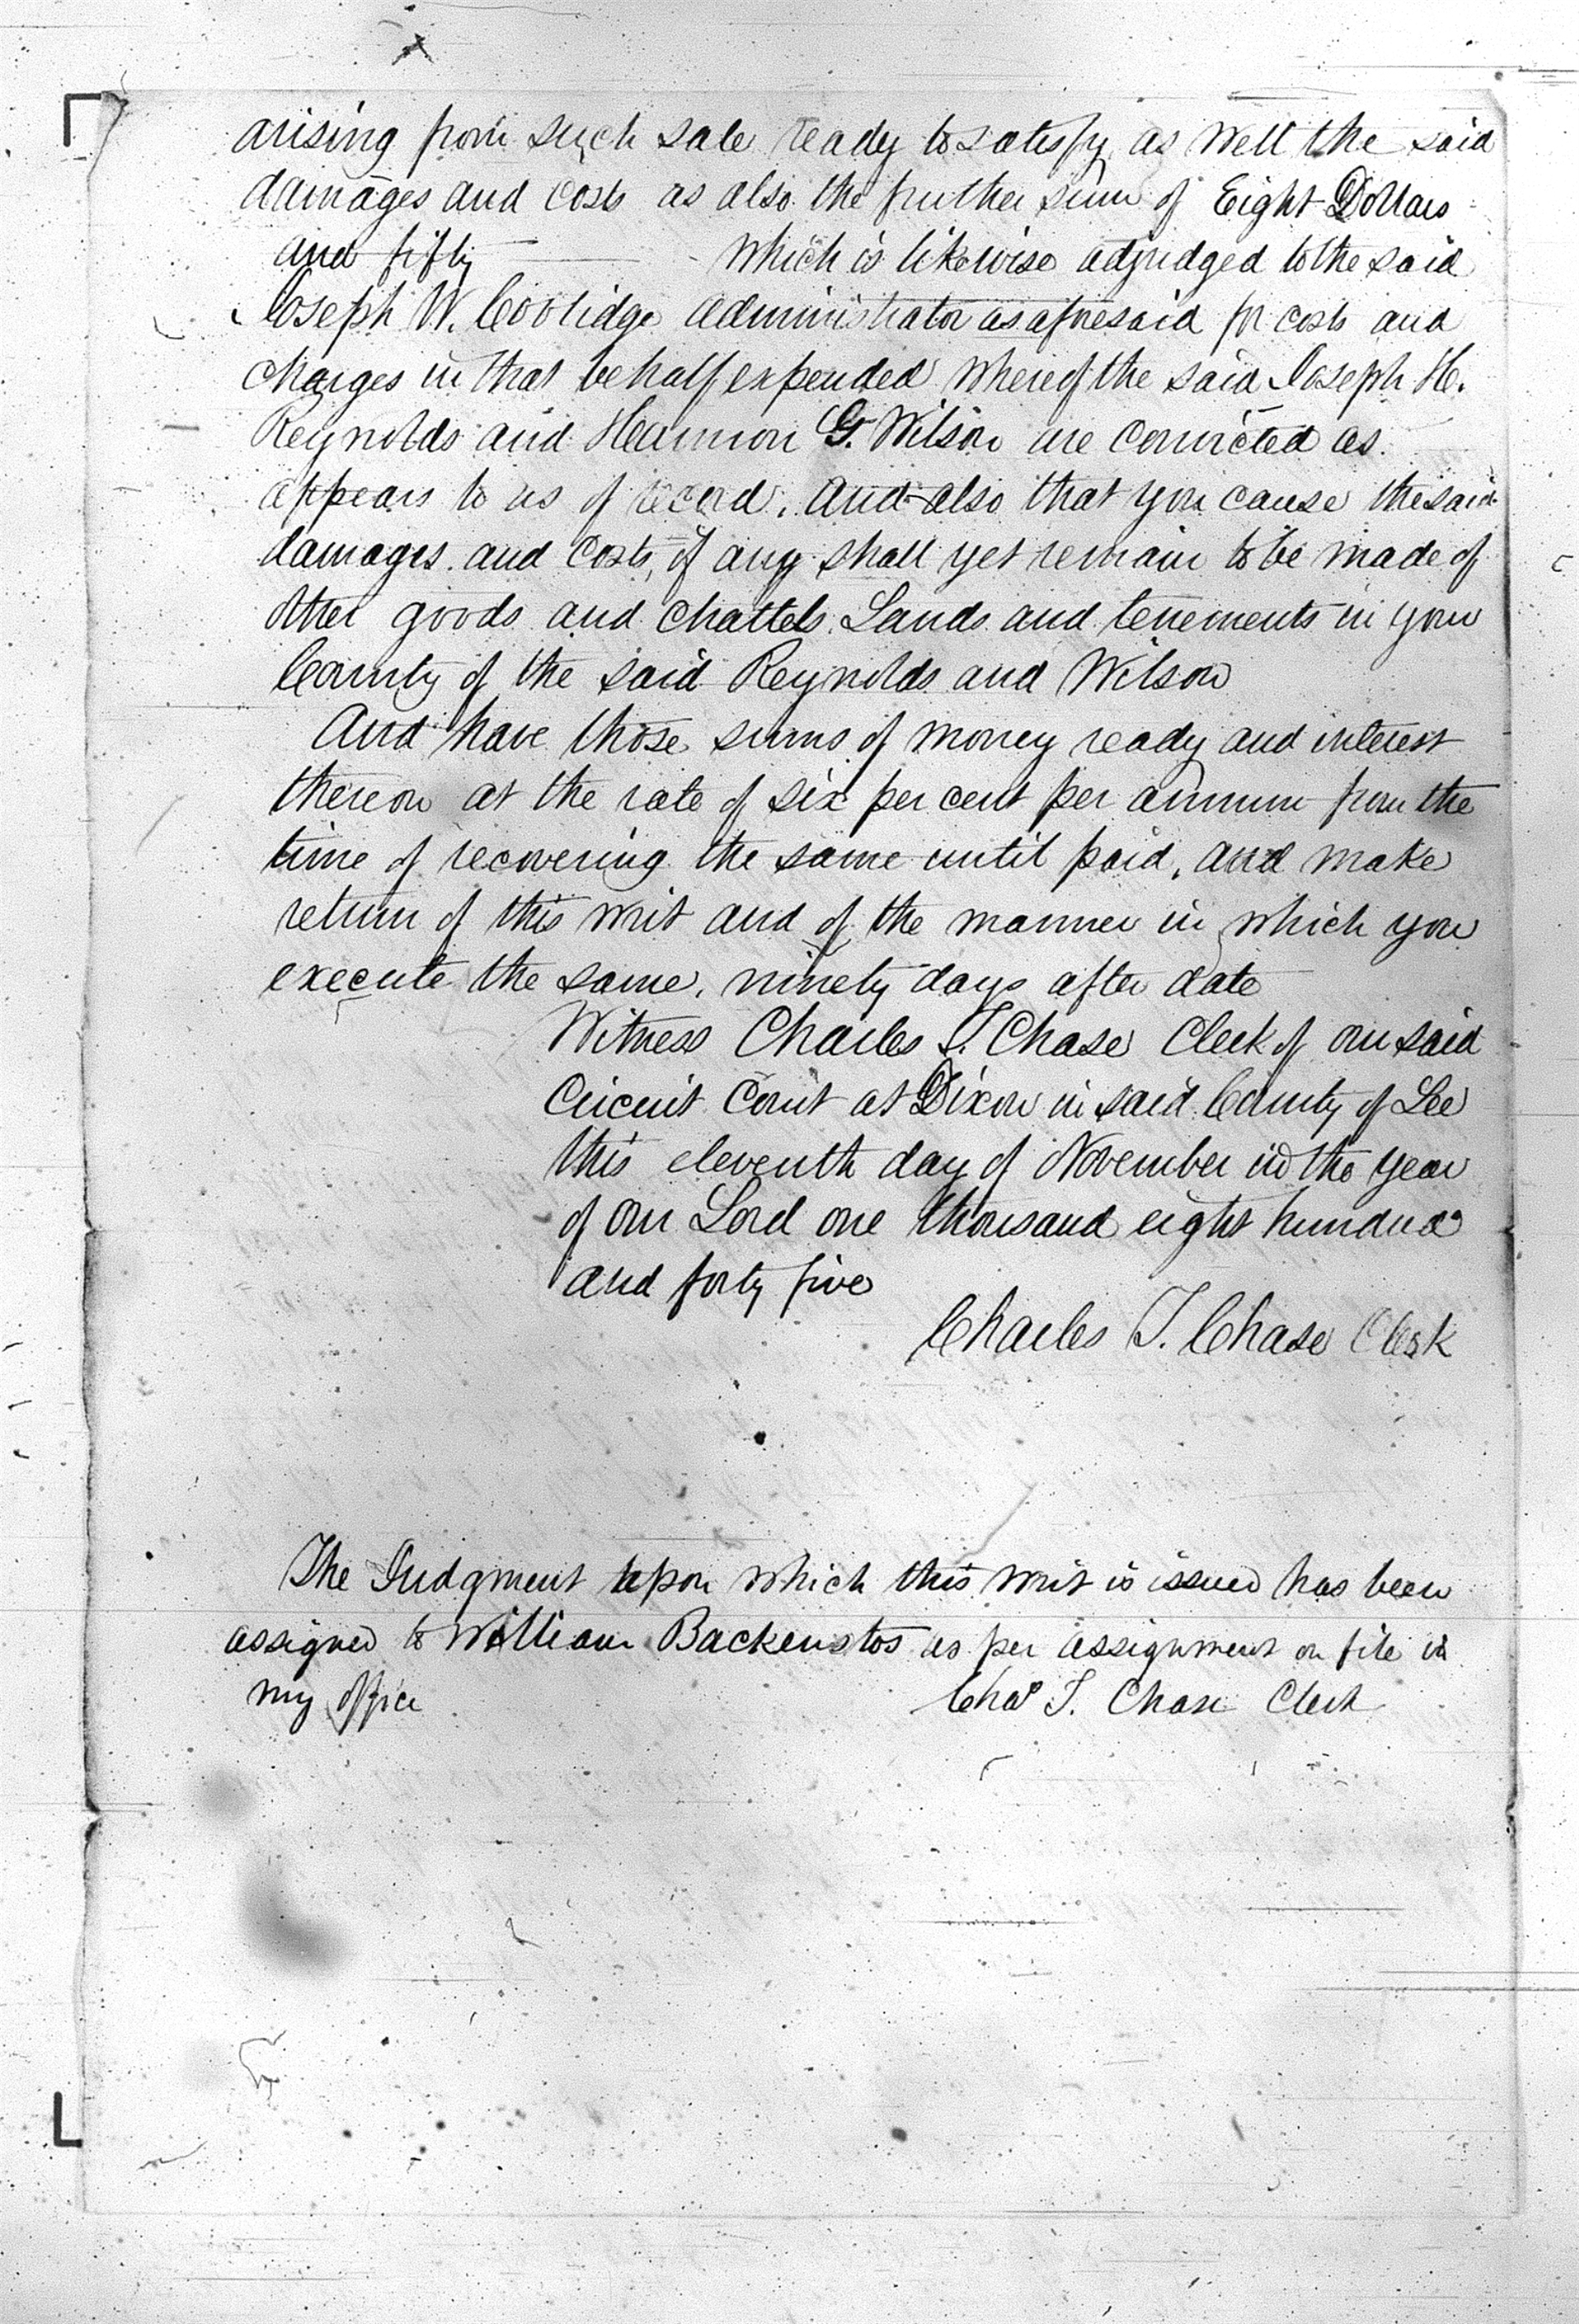 arising from such sale ready to satisfy as well the said
damages and costs as also the further sum of Eight Dollars
and fifty which is likewise adjudged to the said
Joseph W. Coolidge Administrator as aforesaid for costs and
charges in that behalf expended whereof the said Joseph H.
Reynolds and Harmon G. Wilson are convicted as
appears to us of record. And also that you cause the said
damages and costs, if any shall yet remain to be made of
other goods and chattels Lands and tenements in your
County of the said Reynolds and Wilson
And have those sums of money ready and interest
thereon at the rate of six per cent per annum from the
time of recovering the same until paid, and make
return of this writ and of the manner in which you
execute the same, ninety days after date
Witness Charles T. Chase Clerk of our said
Circuit Court at Dixon in said County of Lee
this eleventh day of November in the year
of our Lord one thousand eight hundred
and forty five
Charles T. Chase Clerk
The Judgment upon which this writ is issued has been
assigned to William Backenstos as per assignment on file in
my office Chas T. Chase Clerk